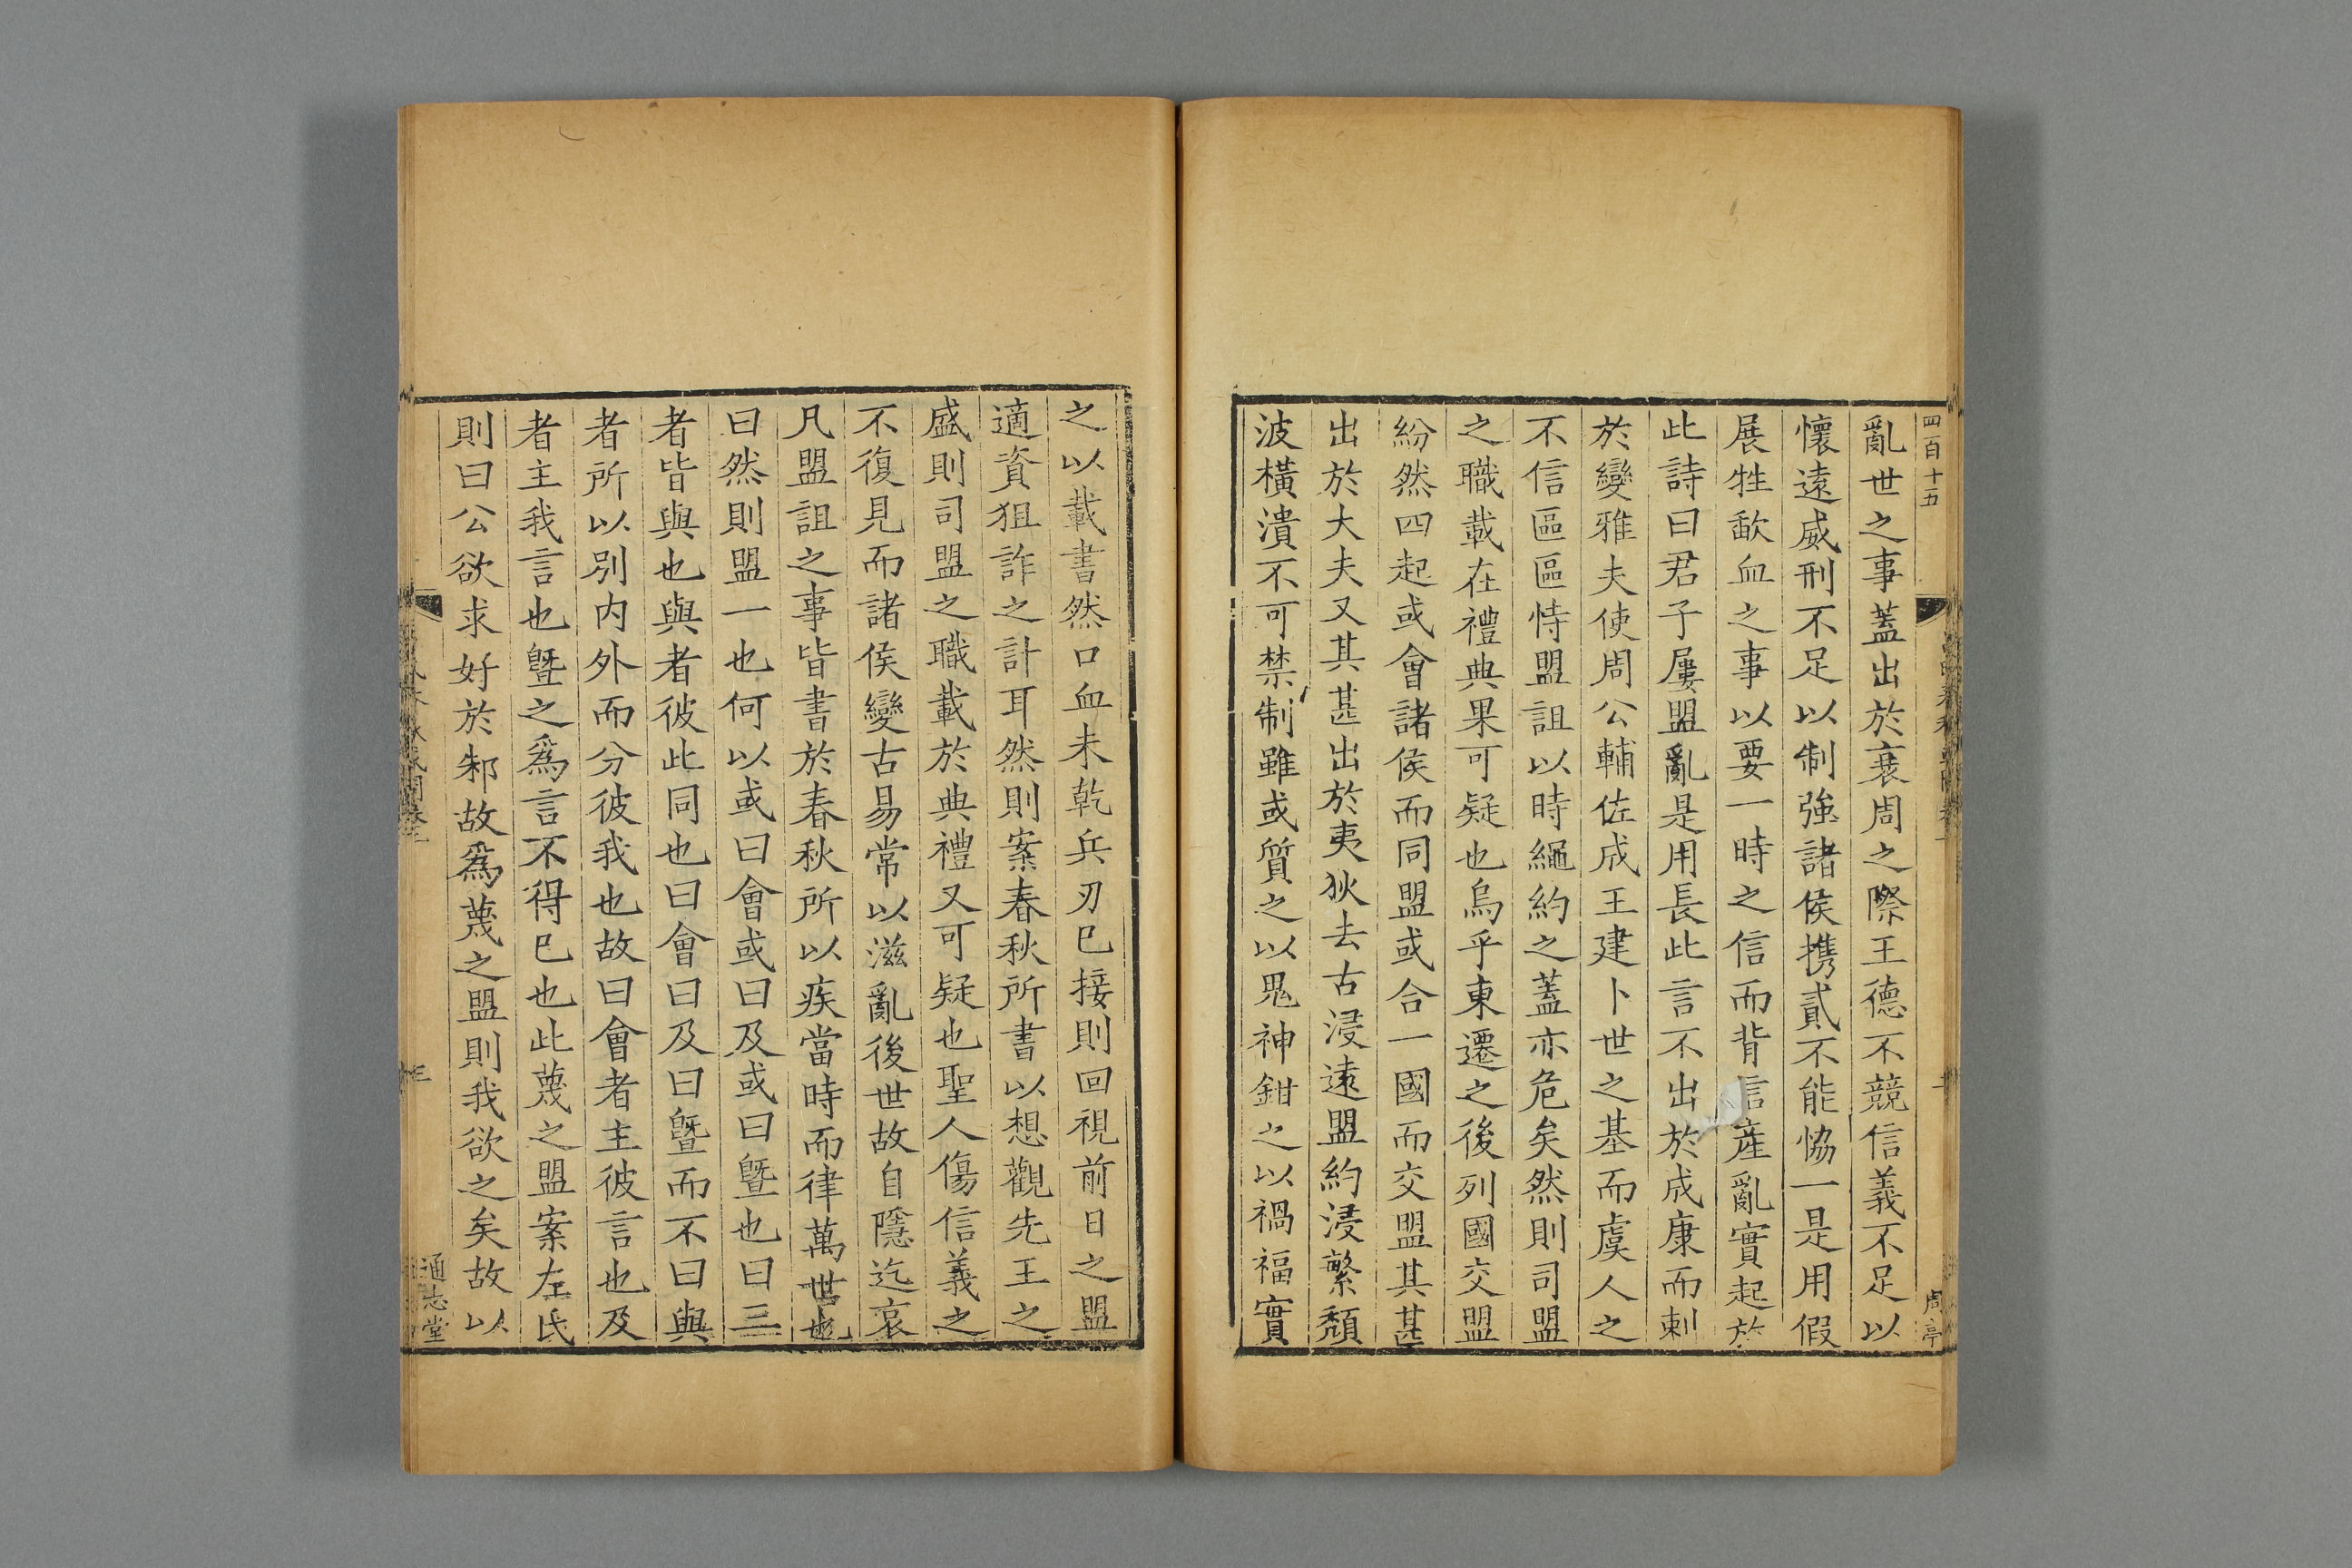 四百十五
亂世之事蓋出於衰周之際王德不競信義不足以
懷遠威刑不足以制強諸侯携貳不能恊一是用假
展牲歃血之事以要一時之信而背信產亂實起於
此詩曰君子屢盟亂是用長此言不出於成康而刺
於變雅夫使周公輔佐成王建卜世之基而虞人之
不信區區恃盟詛以時繩約之蓋亦危矣然則司盟
之職載在禮典果可疑也烏乎東遷之後列國交盟
紛然四起或會諸侯而同盟或合一國而交盟其甚
出於大夫又其甚出於夷狄去古浸遠盟約浸繁頽
波橫潰不可禁制雖或質之以鬼神鉗之以禍福實
周亭
之以載書然口血未乾兵刃巳接則回視前日之盟
適資狙詐之計耳然則案春秋所書以想觀先王之
盛則司盟之職載於典禮又可疑也聖人傷信義之
不復見而諸侯變古易常以滋亂後世故自隱迄哀
凡盟詛之事皆書於春秋所以疾當時而律萬世也
曰然則盟一也何以或曰會或曰及或曰曁也曰三
者皆與也與者彼此同也曰會曰及曰曁而不曰與
者所以別内外而分彼我也故曰會者主彼言也及
者主我言也曁之爲言不得巳也此蔑之盟案左氏
則曰公欲求好於邾故爲蔑之盟則我欲之矣故以
通志堂